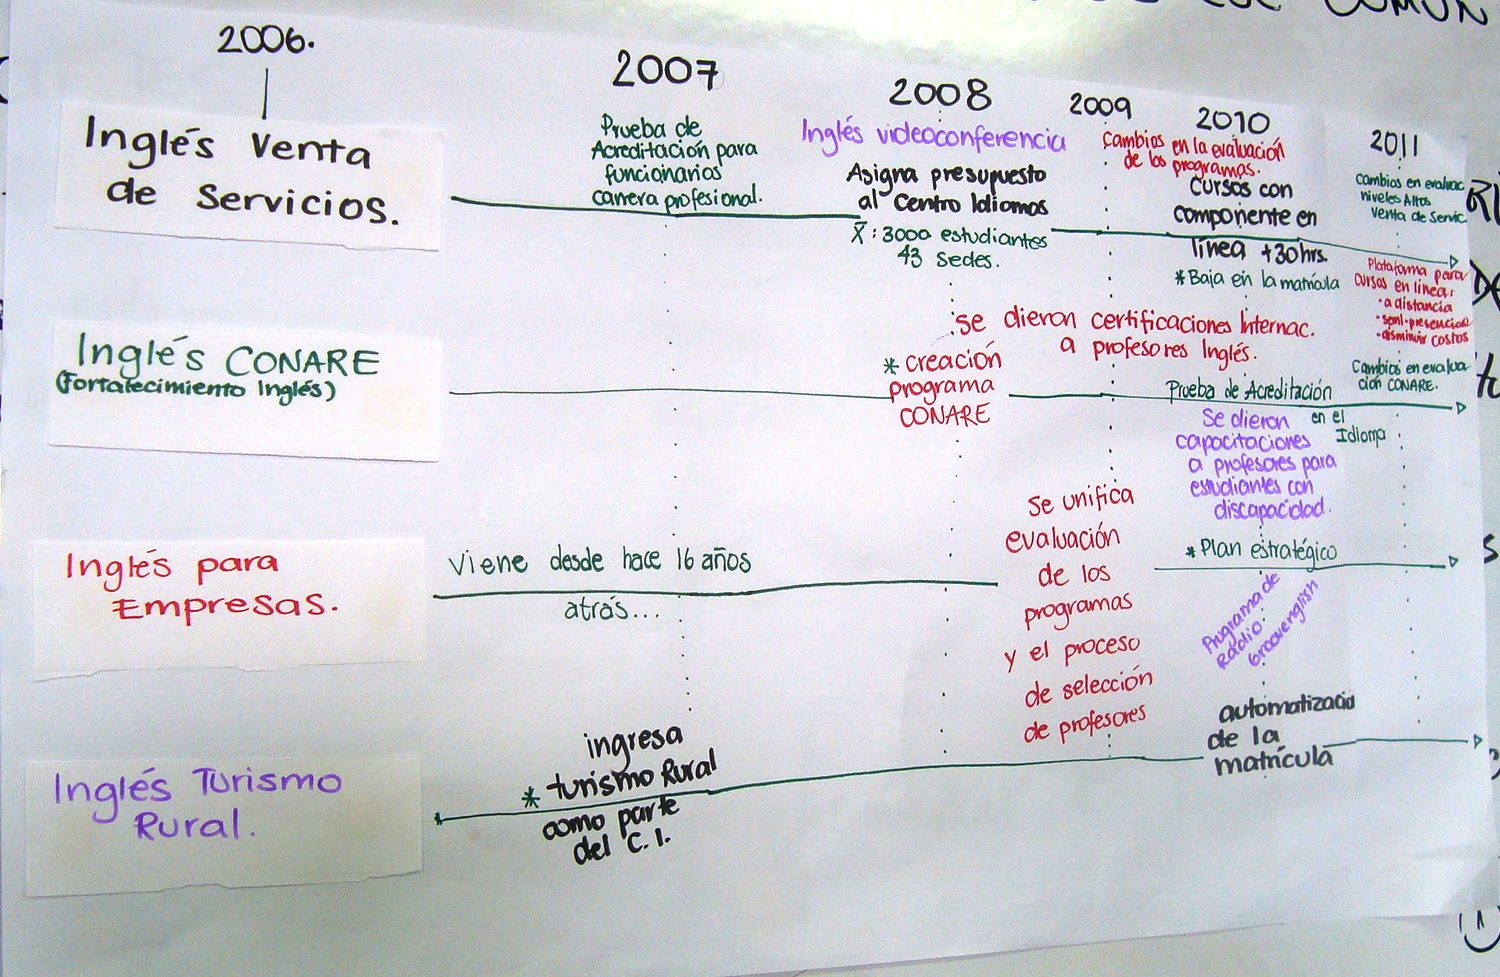 COMÚN
2006.
2007
2008
2009
2010
2011
Inglés Venta
de Servicios.
Prueba de
Acreditación para
funcionarios
carrera profesional.
Inglés videoconferencia
Asigna presupuesto
al Centro Idiomas
X̄: 3000 estudiantes
43 Sedes.
Cambios en la evaluación
de los programas.
Cursos con
componente en
línea +30hrs.
*Baja en la matrícula
Cambios en evaluac
niveles Altos
Venta de Servic.
Plataforma para
cursos en línea:
·a distancia
·semi-presencial
·disminuir costos
Inglés CONARE
(Fortalecimiento Inglés)
* creación
programa
CONARE
:se dieron certificaciones Internac.
a profesores Inglés.
Prueba de Acreditación
en el
Idioma
Cambios en evalua
ción CONARE.
Se dieron
capacitaciones
a profesores para
estudiantes con
discapacidad.
Inglés para
Empresas.
Viene desde hace 16 años
atrás...
Se unifica
evaluación
de los
programas
y el proceso
de selección
de profesores
* Plan estratégico
Programa de
Radio:
Groovenglish
Inglés Turismo
Rural.
ingresa
* turismo Rural
como parte
del C.I.
automatizació
de la
matrícula